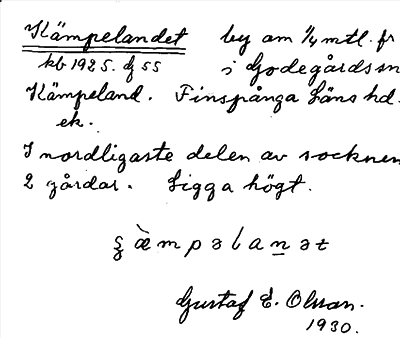 Kämpelandet by om 1/4 mtl. fr
kb 1925. af 55 i Godegårds sn
Kämpeland. Finspånga Läns hd.
ek.
I nordligaste delen av socknen
2 gårdar. Ligga högt.
æ̀mpəlanət
Gustaf E. Olsson.
1930.